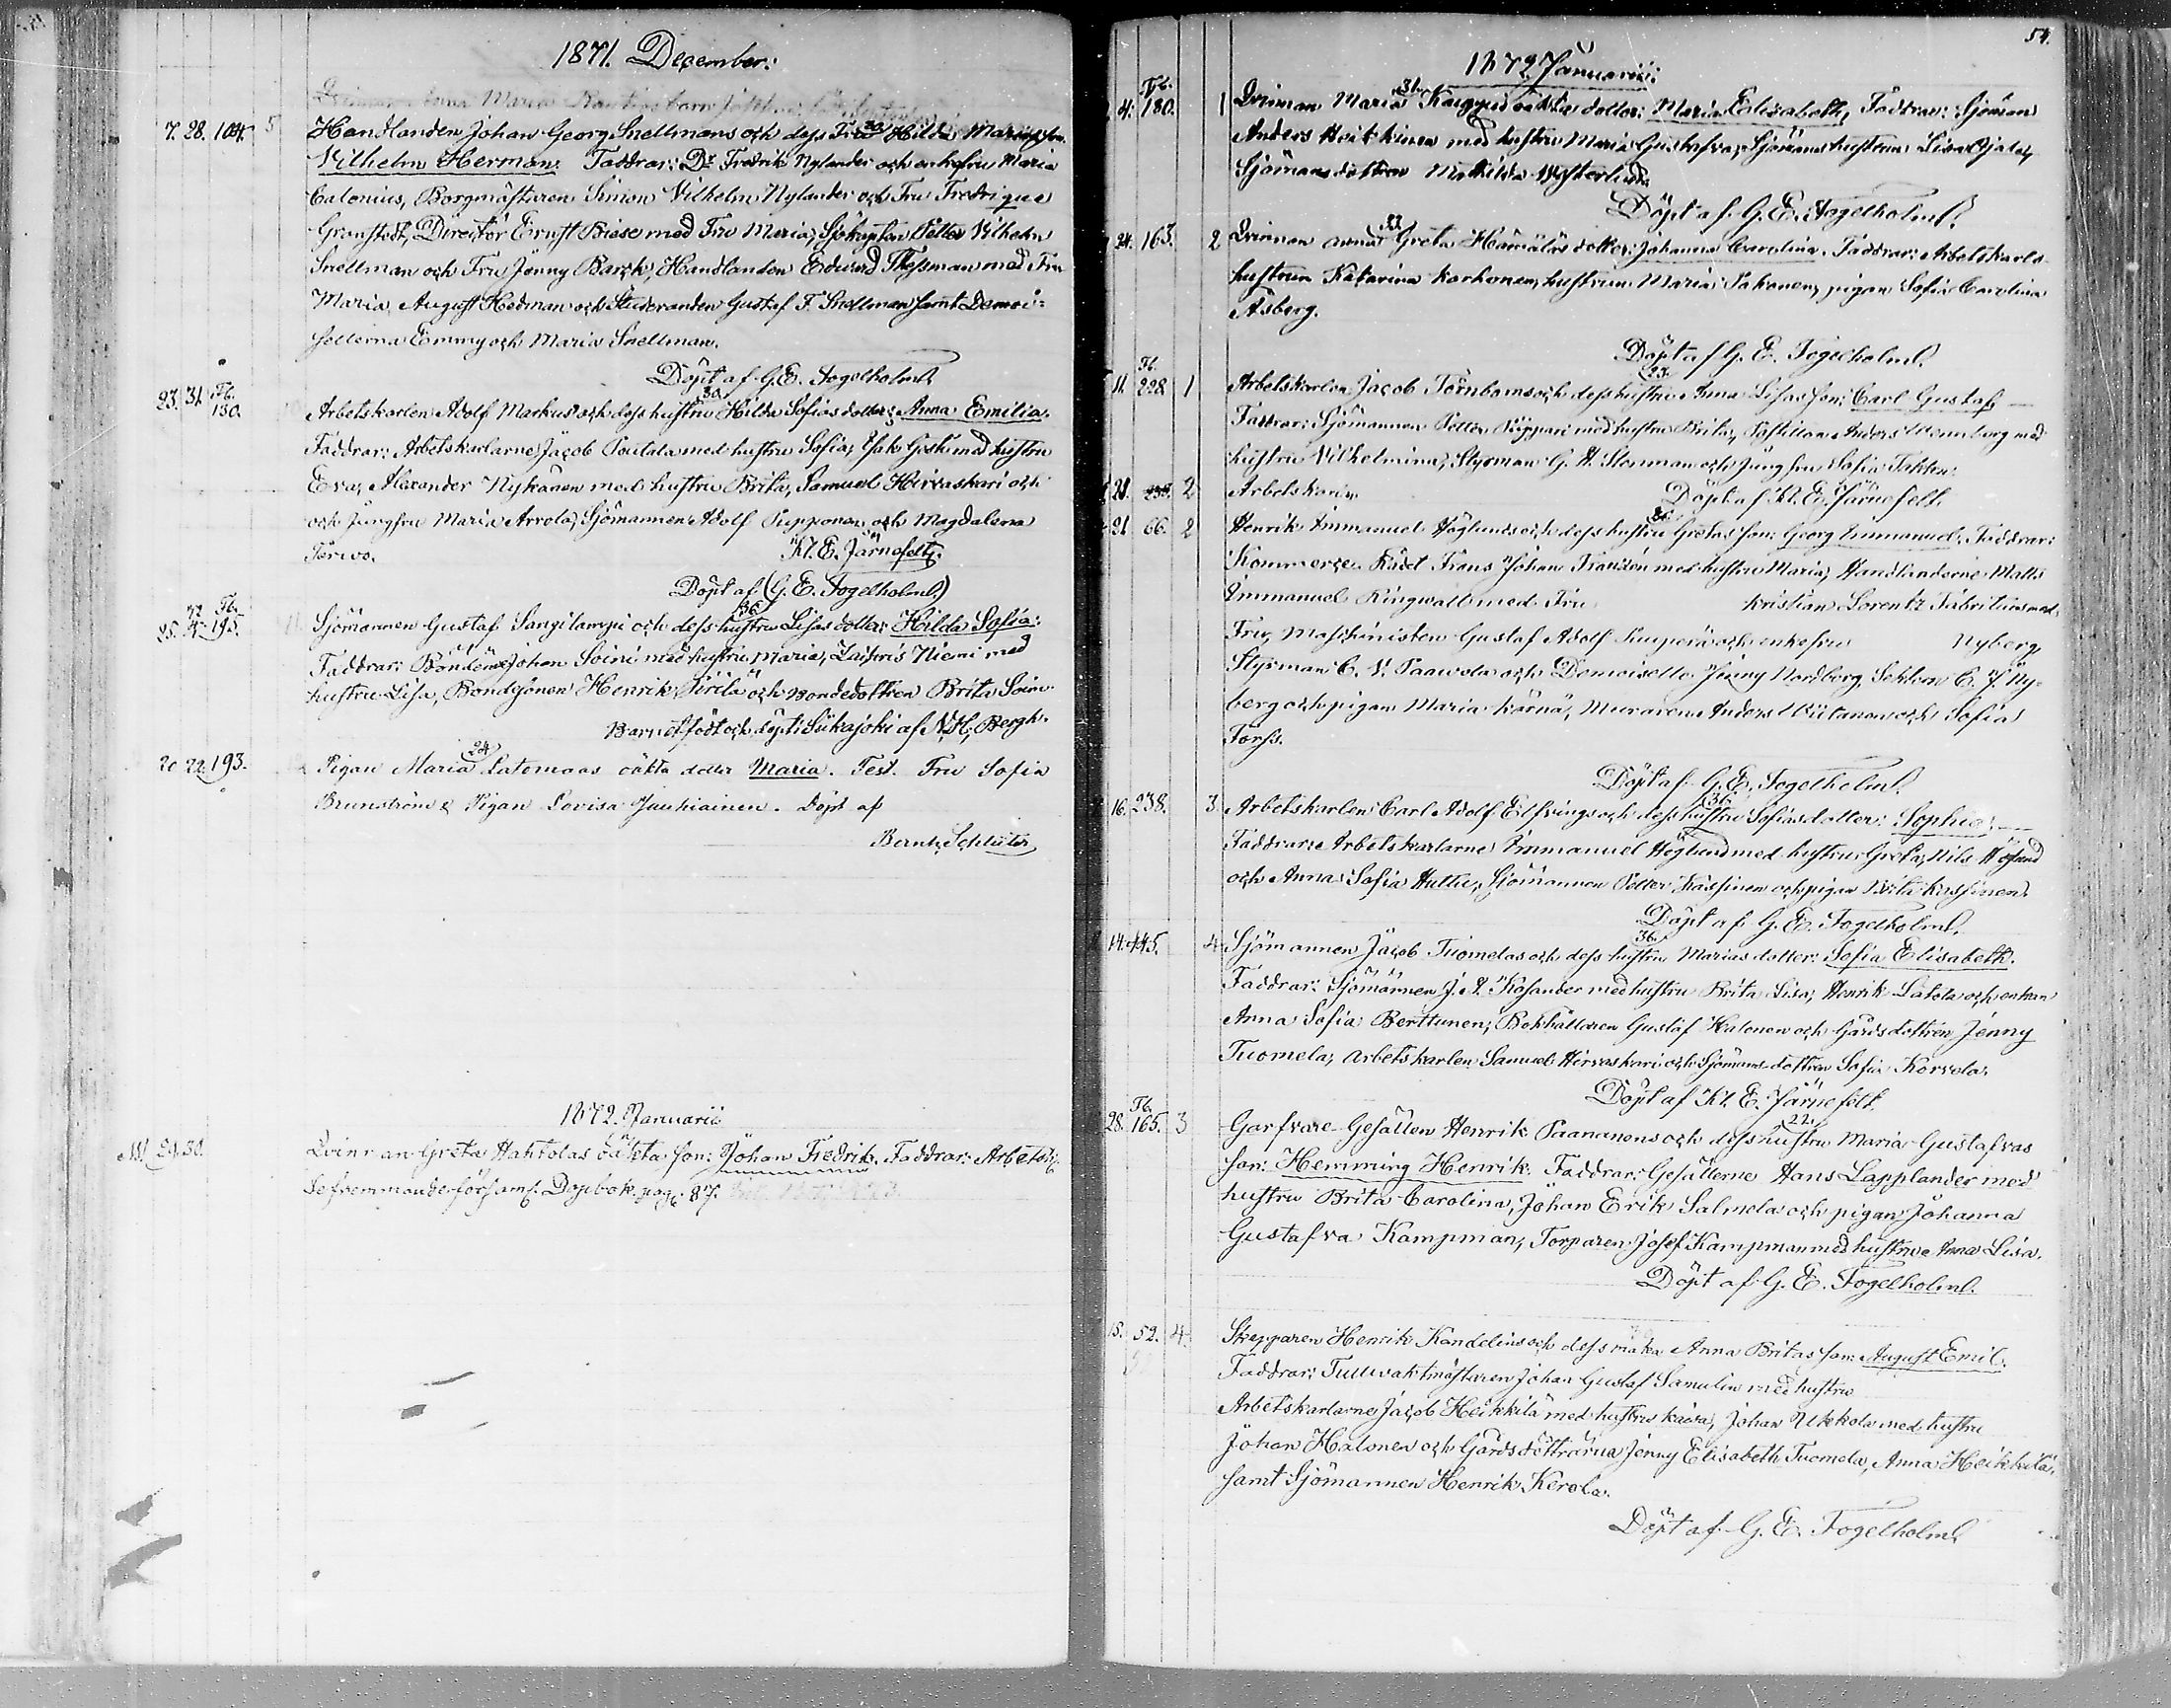 1871. December:
7. 28. 104. 5 Handlanden Johan Georg Snellmans och dess Fru Hilda Marias son:
Vilhelm Herman. Faddrar: Dr Fredrik Nylander och enkefru Maria
Calonius, Borgmästaren Simon Vilhelm Nylander och Fru Fredrique
Granstedt, Director Ernst Biese med Fru Maria, Sjökapten Petter Vilhelm
Snellman och Fru Jenny Barck, Handlanden Edvard Thesman med Fru
Maria, August Hedman och Studeranden Gustaf F. Snellman samt Demoi=
sellerna Emmy och Maria Snellman.
Döpt af G. E. Fogelholm.
23. 31. Fb. 130. Arbetskarlen Adolf Markus och dess hustru 30. Hilda Sofias dotter: Anna Emilia.
Faddrar: Arbetskarlarne Jacob Poutala med hustru Sofia, Isak Gök med hustru
Eva, Alexander Nykänen med hustru Brita, Samuel Hirvaskari och
och Jungfru Maria Arrola, Sjömannen Adolf Pupponen och Magdalena
Tervo. Kl. E. Järnefelt.
Döpt af (G. E. Fogelholm.)
25. Fb. 195. Sjömannen Gustaf Sangilampi och dess hustru 36 Lisas dotter: Hilda Sofia:
Faddrar: Bönderne Johan Soini med hustru Maria, Zachris Niemi med
hustru Lisa, Bondesonen Henrik Pirilä och Bondedottren Brita Soini.
Barnet född och döpt i Siikajoki af N. H. Bergh.
20 22 193. Pigan Maria 24 Latomaas oäkta dotter Maria. Test. Fru Sofia
Brunström & Pigan Lovisa Jauhiainen. Döpt af
Bernh. Schlüter
1872. Januarii
Qvinnan Greta Hahtolas oäkta son: Johan Fredrik. Faddrar: Arbetsk.
Se fremmande förs. aml. Dopbok. pag. 87.
54.
1872 Januarii:
4. Fb. 180. 1 Qvinnan Maria 31. dotter: Maria Elisabeth, Faddrar: Sjöman
Anders Heikkinen med hustru Maria Gustafva, Sjömanshustrun Lisa Ojala,
Sjömansdottren Mathilda Vesterlund.
Döpt af G. E. Fogelholm.
24. 163. 2 Qvinnan Anna 33 Greta Hämäläs dotter: Johanna Carolina. Faddrar: Arbetskarls
hustrun Katarina Karhonen, hustrun Maria Pakonen, pigan Sofia Carolina
Åsberg.
Döpt af G. E. Fogelholm.
11. Fb. 228 1 Arbetskarlen Jacob Törnboms och dess hustru 23. Anna Lisas son: Carl Gustaf. —
Faddrar: Sjömannen Petter Pippari med hustru Brita, Postillon Anders Wennberg med
hustru Vilhelmina, Styrman G. A. Stenman och Jungfru Sofia Takkun.
21. 2 Arbetskarlen Döpt af Kl. E. Järnefelt.
21 66. 2 Henrik Immanuel Höglunds och dess hustru Gretas son: Georg Immanuel. Faddrar:
Kommerse Rådet Frans Johan Franzén med hustru Maria, Handlanderne Matts
Immanuel Ringwall med Fru Kristian Lorentz Fabritius med
Fru, Maschinisten Gustaf Adolf Simperi och enkefru Nyberg
Styrman C. V. Paavola och Demoiselle Jenny Nordberg, C. J. Ny=
berg och pigan Maria Kärnä, Muraren Anders Wiitanen och Sofia
Forss.
Döpt af G. E. Fogelholm.
16. 238. 3 Arbetskarlen Carl Adolf Elfvings och dess hustru 31 Sofias dotter: Sophia. —
Faddrar: Arbetskarlarne Immanuel Höglund med hustru Greta, Nils Höglund
och Anna Sofia Huttu, Sjömannen Petter Kassinen och pigan Brita Kassinen.
Döpt af G. E. Fogelholm.
14. 145. 4 Sjömannen Jacob Tuomelas och dess hustru 36. Marias dotter: Sofia Elisabeth.
Faddrar: Sjömännen J. A. Kosander med hustru Brita Lisa, Henrik Latola och enkan
Anna Sofia Berttunen, Bokhållaren Gustaf Halonen och Gårdsdottren Jenny
Tuomela, Arbetskarlen Samuel Hirvaskari och Sjömansdottren Sofia Korvola.
Döpt af Kl. E. Järnefelt.
28. Fb. 165. 3 Garfvare-Gesällen Henrik Paananens och dess hustru 22. Maria Gustafvas
son: Hemming Henrik. Faddrar: Gesällerne Hans Lapplander med
hustru Brita Carolina, Johan Erik Salmela och pigan Johanna
Gustafva Kampman, Torparen Josef Kampman med hustru Anna Lisa.
Döpt af G. E. Fogelholm.
15. 52. 4. Skepparen Henrik Kandelins och dess maka Anna Britas son: August Emil.
Faddrar: Tullvaktmästaren Johan Gustaf Samulin med hustru
Arbetskarlarne Jacob Heikkilä med hustru Kaisa, Johan Ukkola med hustru
Johan Halonen och Gårdsdöttrarna Jenny Elisabeth Tuomela, Anna Heikkilä,
samt Sjömannen Henrik Kerola.
Döpt af G. E. Fogelholm.